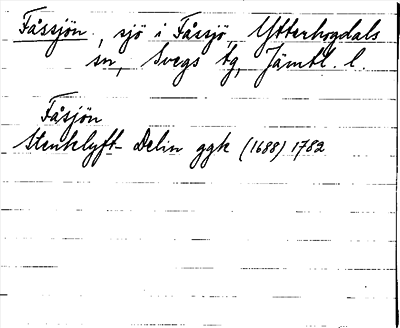 Fåssjön, sjö i Fåssjö, Ytterhogdals
sn, Svegs tg, Jämtl. l.
Fåsjön
Stenklyft Delin ggk (1688) 1782